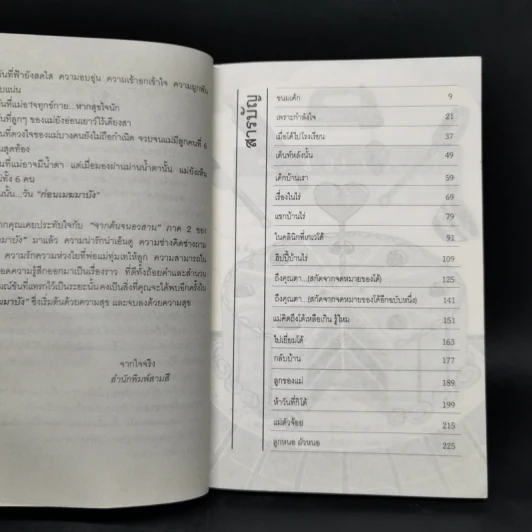 วันที่ฟ้ายังสดใส ความอบอุ่น ความเข้าอกเข้าใจ ความผูกพัน
แน่น
วันที่แม่อาจทุกข์กาย...หากสุขใจนัก
วันที่ลูกๆ ของแม่ยังอ่อนเยาว์ไร้เดียงสา
วันที่ดวงใจของแม่บางคนยังไม่ถือกำเนิด จวบจนแม่มีลูกคนที่ 6
สุดท้อง
วันที่แม่อาจมีน้ำตา แต่เมื่อมองผ่านม่านน้ำตานั้น แม่ยังเห็น
ทั้ง 6 คน
นั้น...วัน "ก่อนเมฆมาบัง"
หากคุณเคยประทับใจกับ "จากต้นจนอวสาน" ภาค 2 ของ
มาบัง" มาแล้ว ความน่ารักน่าเอ็นดู ความช่างคิดช่างถาม
ความรักความห่วงใยที่พ่อแม่ทุ่มเทให้ลูก ความสามารถใน
ถอดความรู้สึกออกมาเป็นเรื่องราว ที่ดีทั้งถ้อยคำและสำนวน
อารมณ์ขันที่แทรกไว้เป็นระยะนั้น คงเป็นสิ่งที่คุณจะได้พบอีกครั้งใน
มาบัง" ซึ่งเริ่มต้นด้วยความสุข และจบลงด้วยความสุข
จากใจจริง
สำนักพิมพ์สามสี
สารบัญ
ขนมเค้ก 9
เพราะกำลังใจ 21
เมื่อโต้ไปโรงเรียน 37
เต็นท์หลังนั้น 49
เด็กบ้านเรา 59
เรื่องในไร่ 69
แขกบ้านไร่ 79
ในคลินิกที่เกเวโต้ 91
ฮิปปี้บ้านไร่ 109
ถึงคุณตา...(สกัดจากจดหมายของโต้) 125
ถึงคุณตา...(สกัดจากจดหมายของโต้อีกฉบับหนึ่ง) 141
แม่คิดถึงโต้เหลือเกิน รู้ไหม 151
ไปเยี่ยมโต้ 163
กลับบ้าน 177
ลูกของแม่ 189
ห้าวันที่กีโต้ 199
แม่ตัวจ้อย 215
ลูกหนอ ผัวหนอ 225